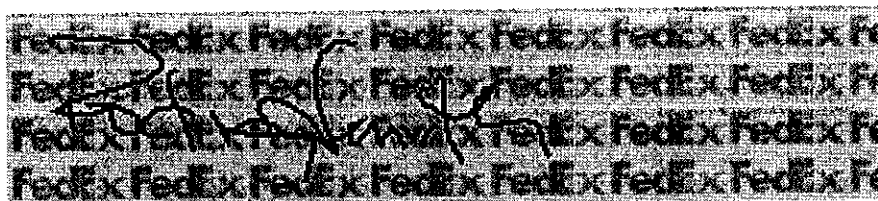 FedEx FedEx FedEx FedEx FedEx FedEx FedEx Fed
FedEx FedEx FedEx FedEx FedEx FedEx FedEx Fed
FedEx FedEx FedEx FedEx FedEx FedEx FedEx Fed
FedEx FedEx FedEx FedEx FedEx FedEx FedEx Fed